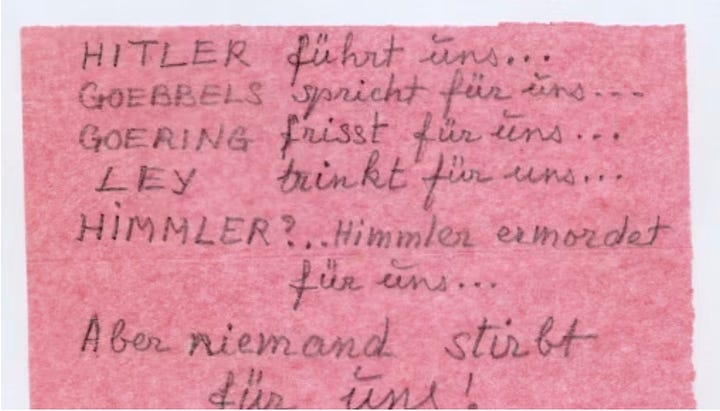 HITLER führt uns...
GOEBBELS spricht für uns...
GOERING frisst für uns...
LEY trinkt für uns...
HIMMLER?..Himmler ermordet
für uns...
Aber niemand stirbt
für uns!